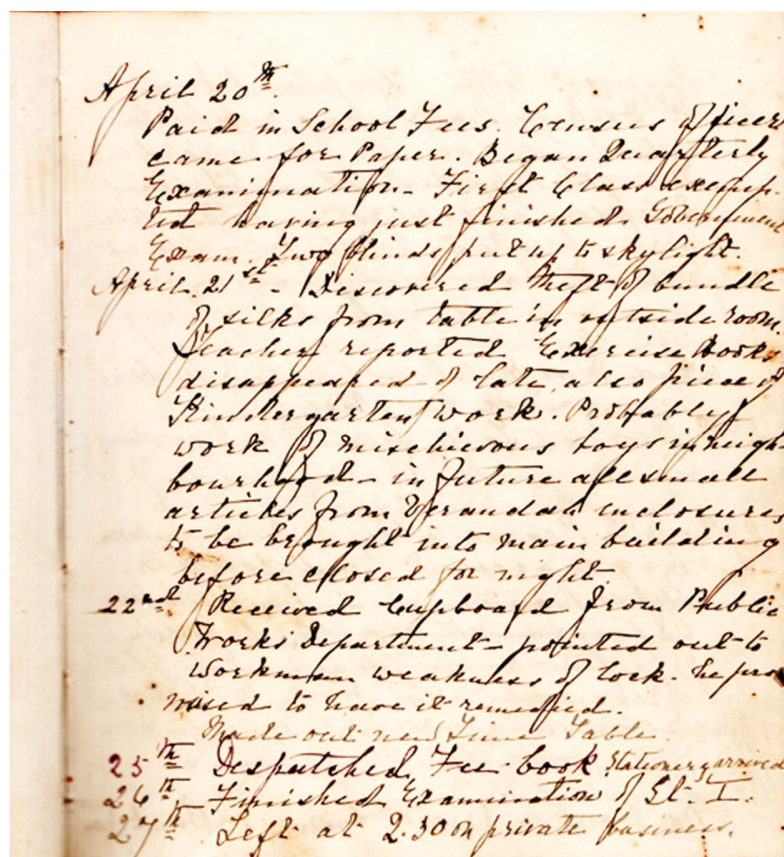 April 20th
Paid in School Fees. Census Officer
came for Paper. Began Quarterly
Examination - First Class exemp-
ted having just finished Government
Exam. Two blinds put up to skylight.
April 21st - Discovered theft of bundle
of silks from table in outside room.
Teacher reported Exercise Books
disappeared of late, also piece of
Kindergarten work. Probably
work of mischievous boys in neigh-
bourhood - in future all small
articles from Verandah enclosures
to be brought into main building
before closed for night.
22nd Received Cupboard from Public
Works Department - pointed out to
workman weakness of lock - he pro-
mised to have it remedied.
Made out new Time Table.
25th Despatched Fee book Stationery arrived
26th Finished Examination of St. I.
27th Left at 2.30 on private business.